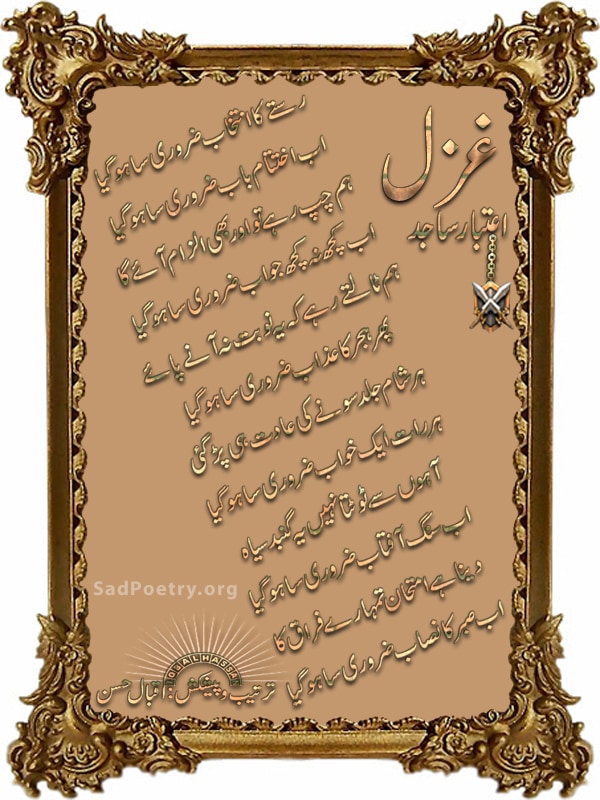 غزل
اعتبار ساجد
رستے کا انتخاب ضروری سا ہو گیا
اب اختتامِ باب ضروری سا ہو گیا
ہم چپ رہے تو اور بھی الزام آئے گا
اب کچھ نہ کچھ جواب ضروری سا ہو گیا
ہم ٹالتے رہے کہ یہ نوبت نہ آنے پائے
پھر ہجر کا عذاب ضروری سا ہو گیا
ہر شام جلد سونے کی عادت ہی پڑ گئی
ہر رات ایک خواب ضروری سا ہو گیا
آہوں سے ٹوٹتا نہیں یہ گنبد سیاہ
اب سنگ آفتاب ضروری سا ہو گیا
دینا ہے امتحان تمہارے فراق کا
اب صبر کا نصاب ضروری سا ہو گیا
SadPoetry.org
IQBAL HASSAN
ترتیب و پیشکش : اقبال حسن